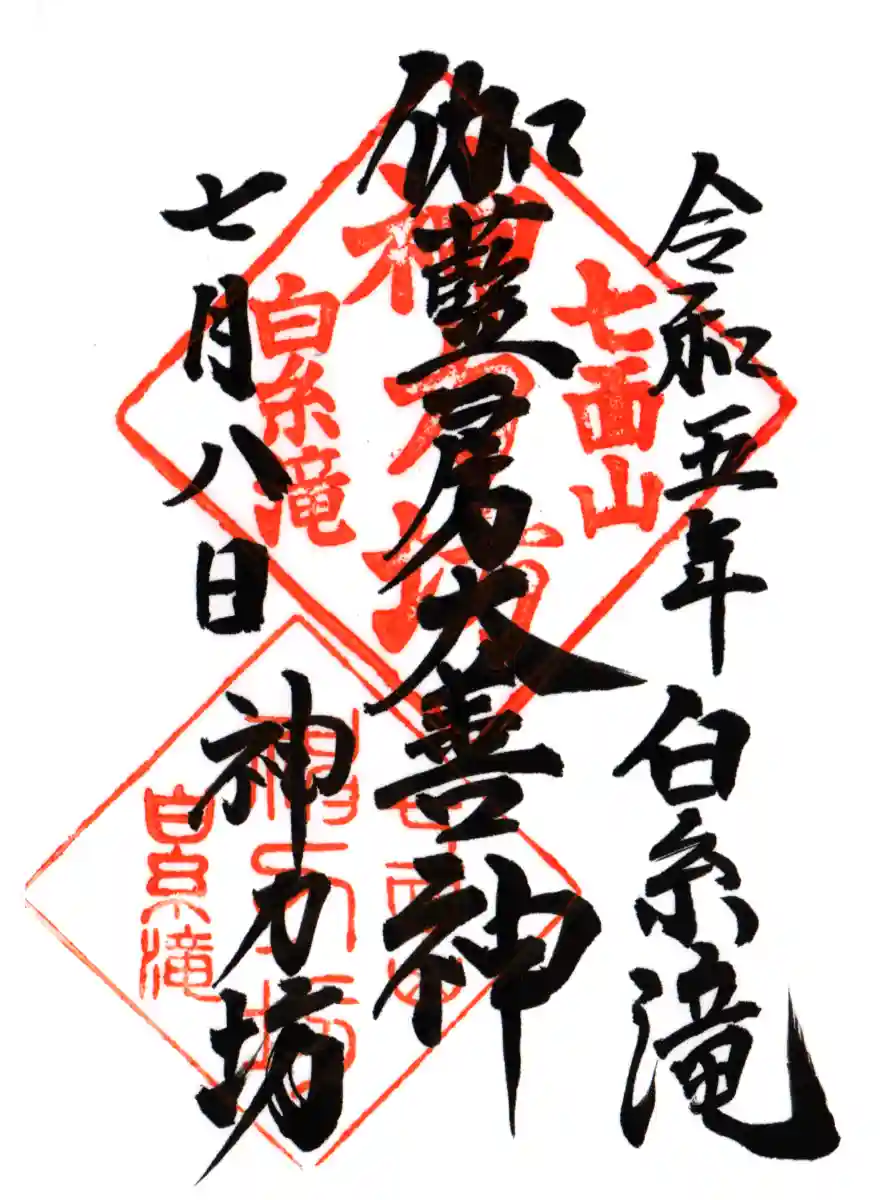 令和五年 白糸滝
伽藍房大善神
七月八日 神力坊
七面山
神力坊
白糸滝
七面山
神力坊
白糸滝